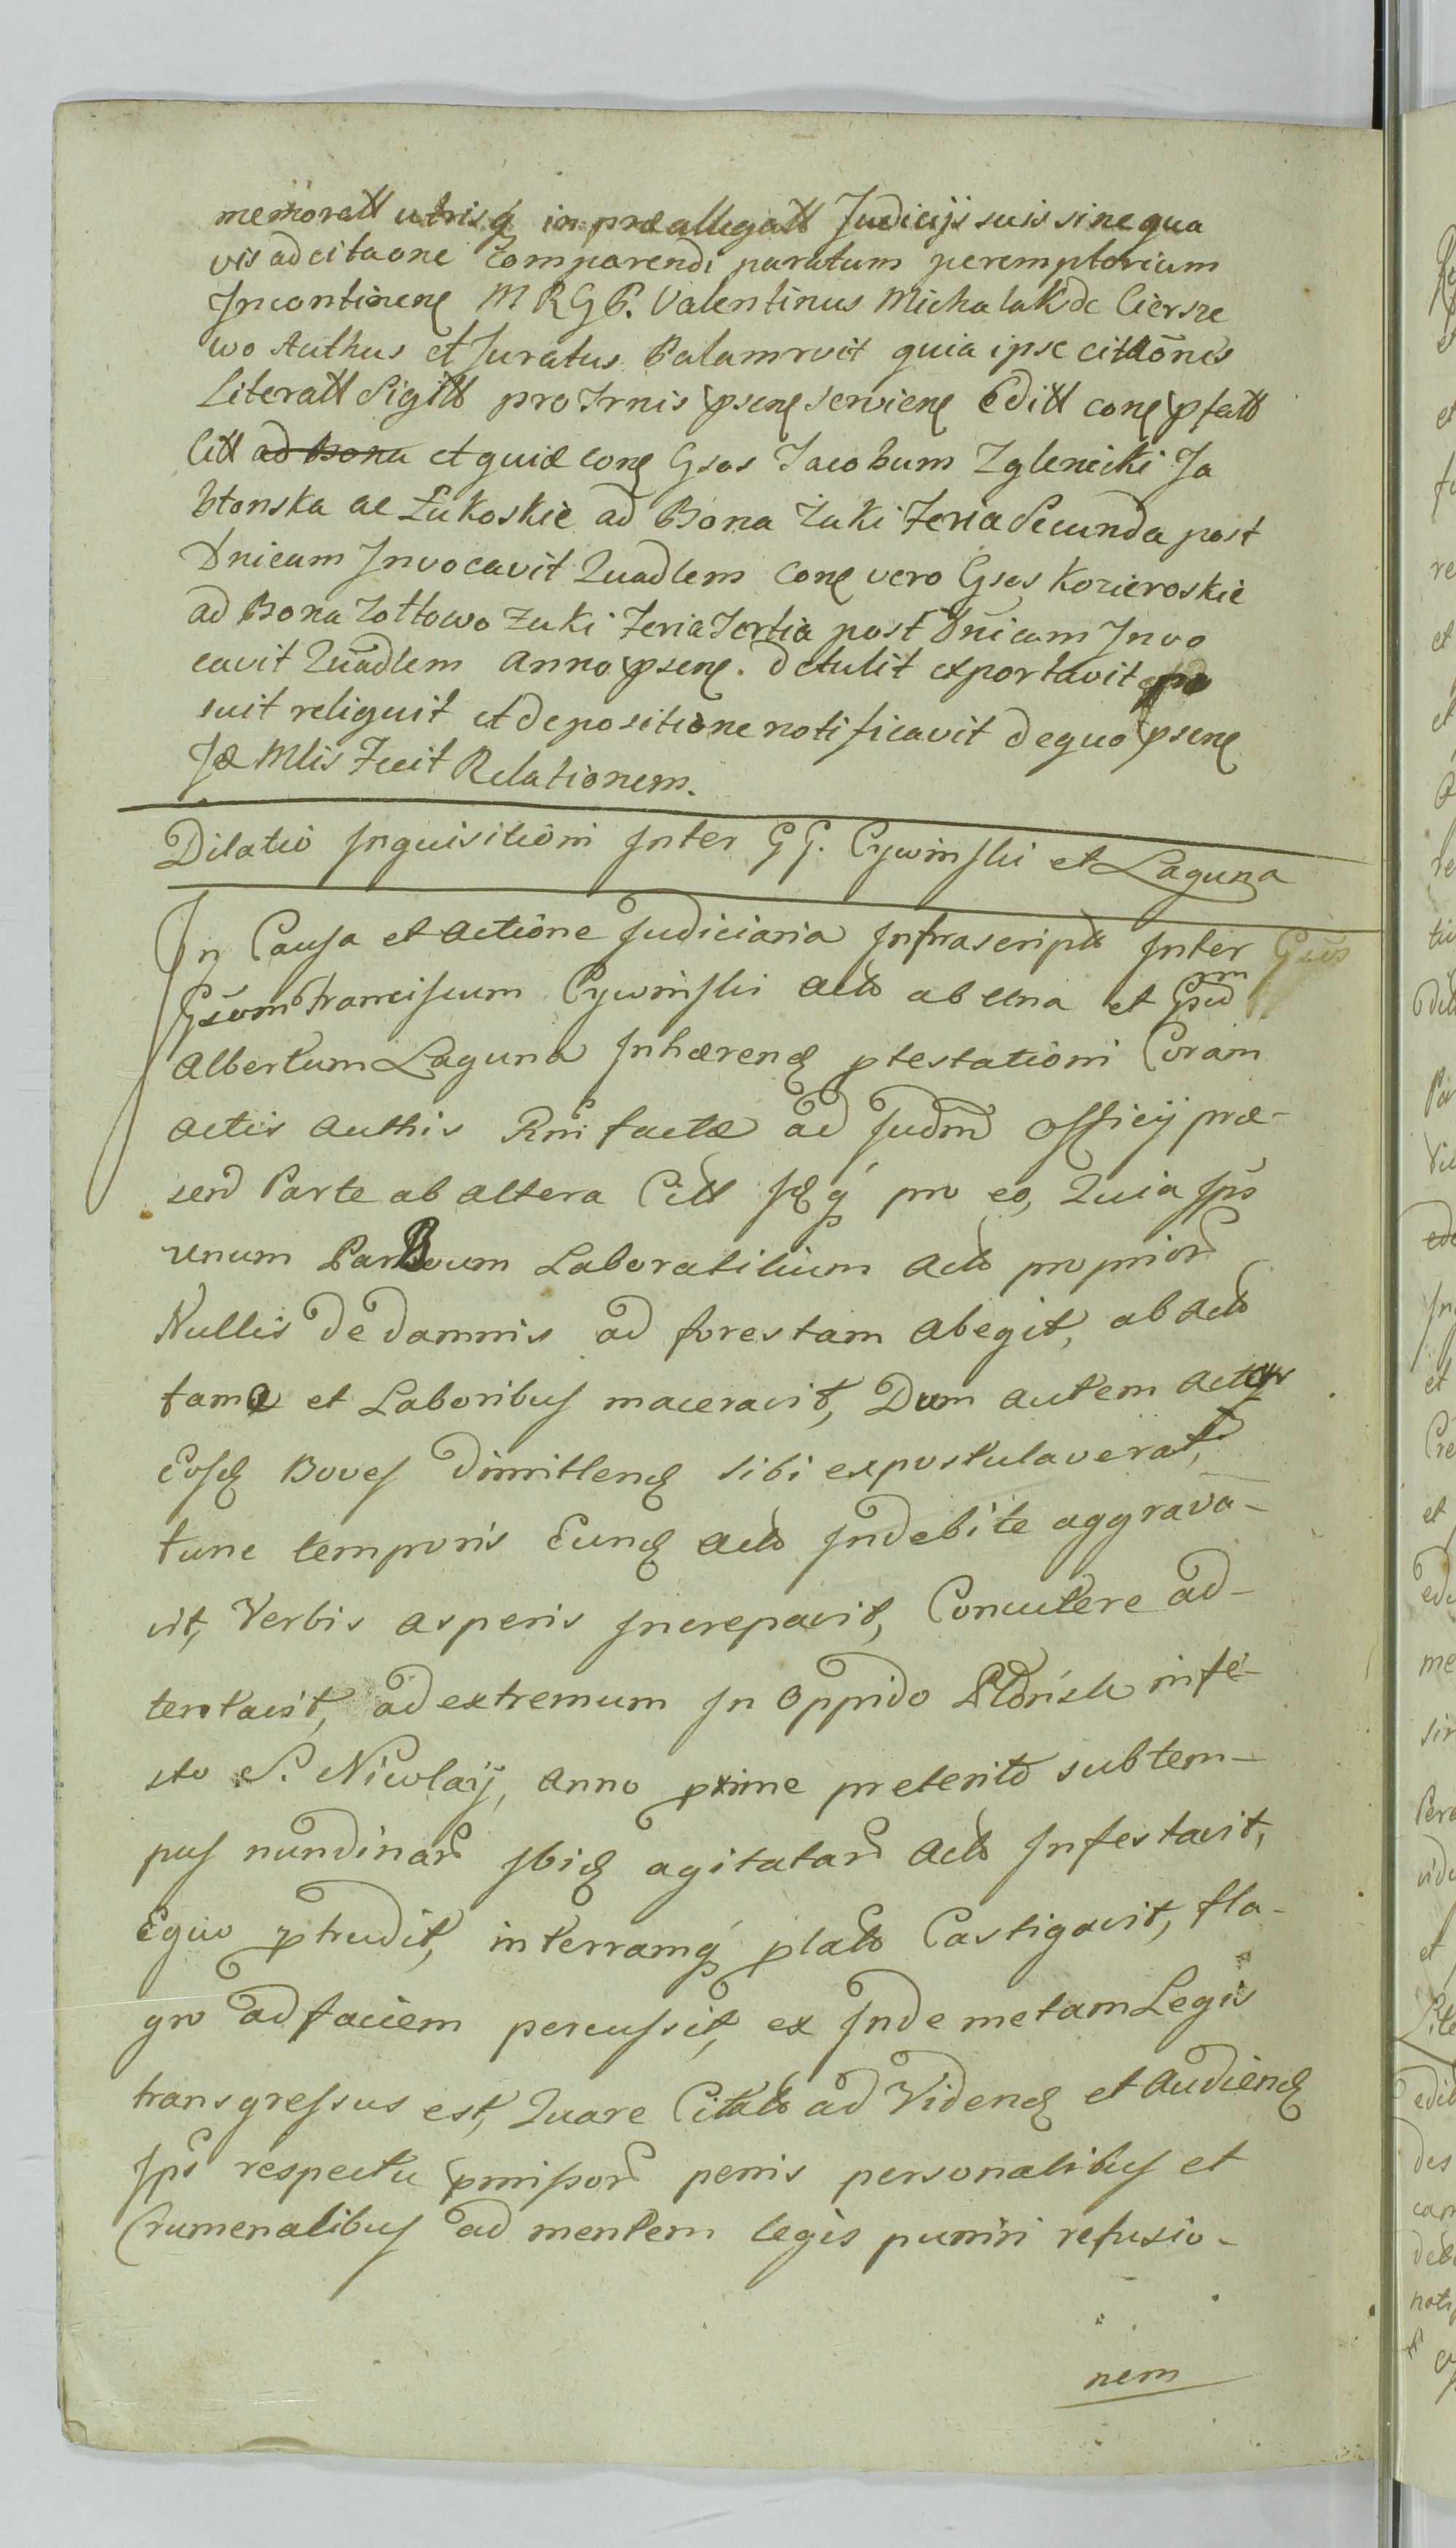 memoratt utrisq in præallegatt Judicijs suis sine qua
vis adcitaone Comparendi paratum peremptorium
Incontinenq M R G P. Valentinus Michalak de Ciersze
wo Authus et Juratus Palamrvit quia ipse cittōnes
Literatt Sigitt pro Trnis psenq servienq Editt conq pfatt
Citt ad Bona et quidē conq Gsos Jacobum Zglenicki Ja
błonska ac Łukoskie ad Bona Żuki Feria Secunda post
Dnicam Invocavit Quadlem Conq vero Gsos Kozieroskie
ad Bona Zołtowo Żuki Feria Tertia post Dnicam Invo
cavit Quādlem Anno psenq. detulit exportavit epo
suit reliquit et de positione notificavit de quo psenq
Jæ Mlis Fecit Relationem.
Dilatio Inquisitioni Inter GG. Cywinski et Laguna
In Causa et Actione Judiciaria Infrascripta Inter Gsus
Gsum Franciscum Cywinski Acto ab una et Gsum
Albertum Laguna Inhærenq ptestationi Coram
Actis Authis Rni factæ ad Judm Officij præ-
sen Parte ab altera Citt Jq q pro eo, Quia Ips
unum Par Boum Laboratilium Acto proprior
Nullis de damnis ad forestam abegit, ab Acto
fame et Laboribus maceravit, Dum autem Actor
Eosq Boves dimittenq sibi expostulaverat,
tunc temporis Eunq Acto Indebite aggrava-
vit, Verbis asperis Increpavit, Concutere ad-
tentavit, ad extremum In Oppido infe-
sto S. Nicolaij, Anno pxime preterito sub tem-
pus nundinar Ibiq agitatar Acto Infestavit,
Equo ptrudit, in terramq plato Castigavit, fla-
gro ad faciem percussit, ex Inde metam Legis
transgressus est, Quare Citato ad Videnq et Audienq
Ips respectu pmissor penis personalibus et
Crumenalibus ad mentem legis puniri refusio-
nem